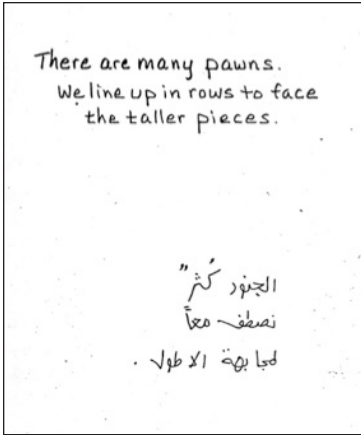 There are many pawns.
We line up in rows to face
the taller pieces.
الجنود كُثر"
نصطف معاً
لمجابهة الاطول .